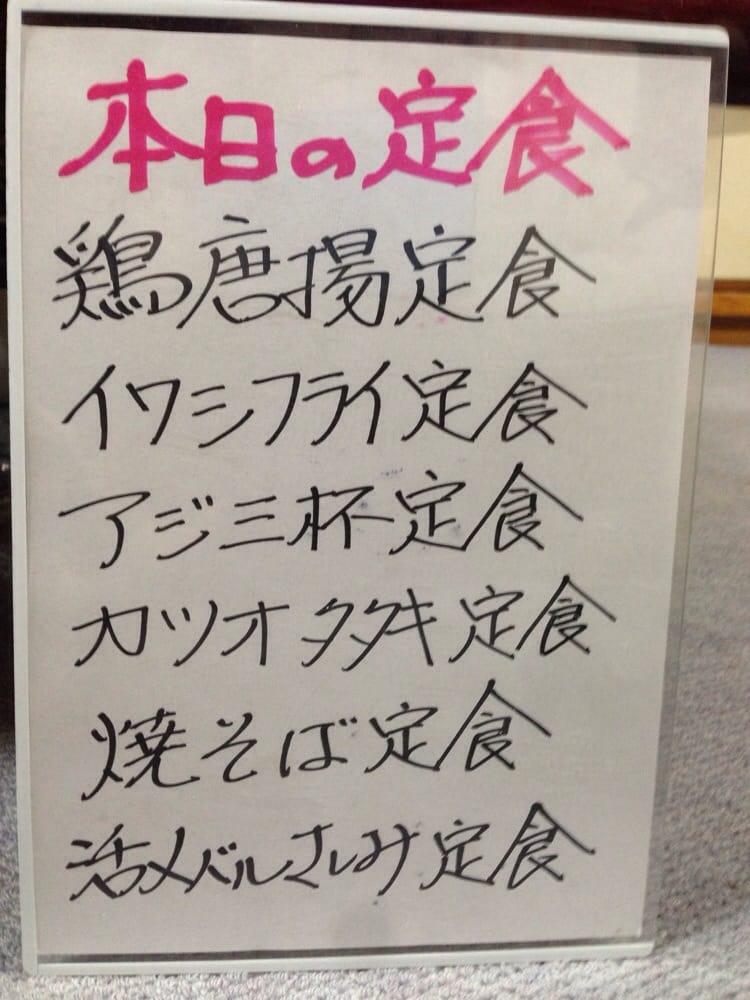 本日の定食
鶏唐揚定食
イワシフライ定食
アジ三杯定食
カツオタタキ定食
焼そば定食
活メバルさしみ定食